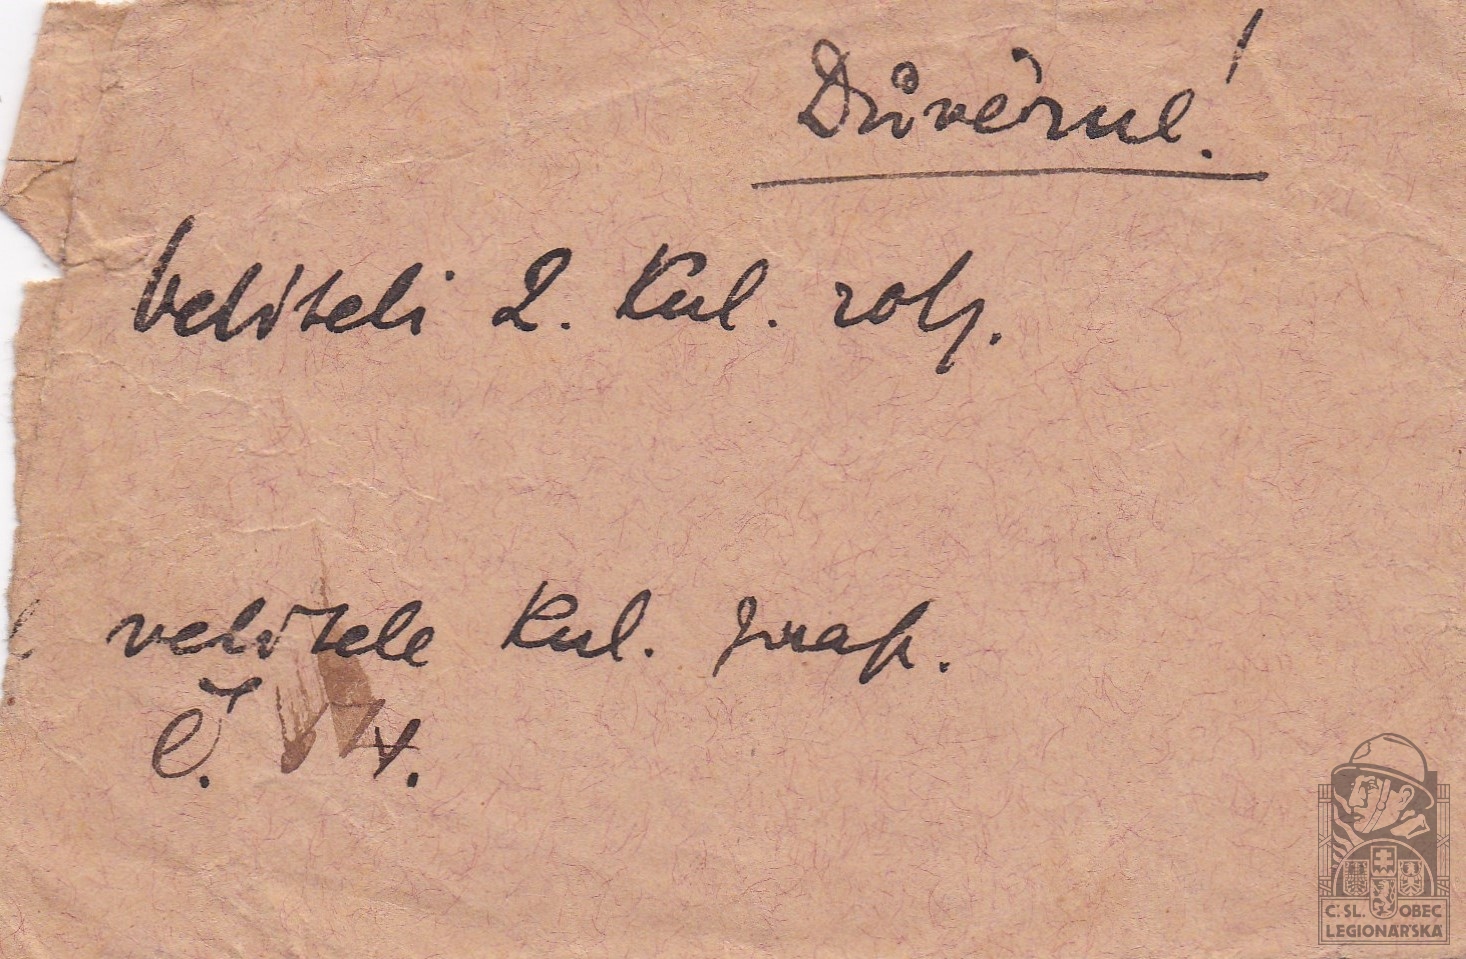 Důvěrné!
Veliteli 2. kul. roty.
velitele kul. prap.
č.
Č.SL. OBEC
LEGIONÁŘSKÁ